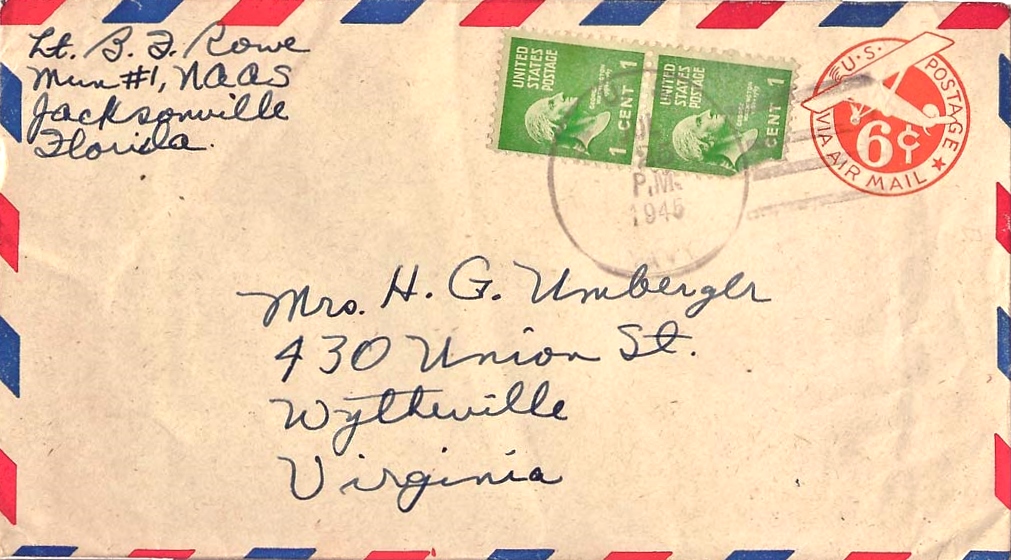 Lt. B. F. Rowe
Mun #1, NAAS
Jacksonville
Florida.
UNITED STATES POSTAGE
1 CENT 1
UNITED STATES POSTAGE
CENT 1
P.M.
1945
U.S. POSTAGE
6¢
VIA AIR MAIL
Mrs. H. G. Umberger
430 Union St.
Wytheville
Virginia